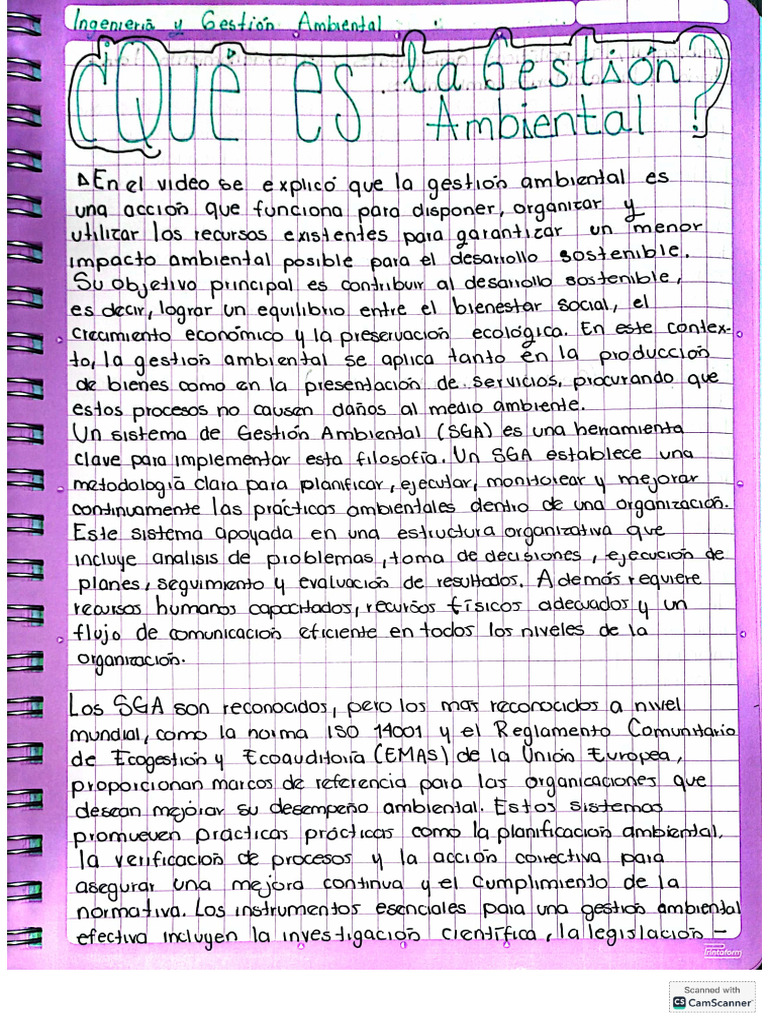 Ingeniería y Gestión Ambiental
¿Qué es la Gestión
Ambiental?
En el video se explicó que la gestión ambiental es
una acción que funciona para disponer, organizar y
utilizar los recursos existentes para garantizar un menor
impacto ambiental posible para el desarrollo sostenible.
Su objetivo principal es contribuir al desarrollo sostenible,
es decir, lograr un equilibrio entre el bienestar social, el
crecimiento económico y la preservación ecológica. En este contex-
to, la gestión ambiental se aplica tanto en la producción
de bienes como en la presentación de servicios, procurando que
estos procesos no causen daños al medio ambiente.
Un sistema de Gestión Ambiental (SGA) es una herramienta
clave para implementar esta filosofía. Un SGA establece una
metodología clara para planificar, ejecutar, monitorear y mejorar
continuamente las prácticas ambientales dentro de una organización.
Este sistema apoyada en una estructura organizativa que
incluye analisis de problemas, toma de decisiones, ejecución de
planes, seguimiento y evaluación de resultados. Además requiere
recursos humanos capacitados, recursos físicos adecuados y un
flujo de comunicación eficiente en todos los niveles de la
organización.
Los SGA son reconocidos, pero los mas reconocidos a nivel
mundial, como la norma ISO 14001 y el Reglamento Comunitario
de Ecogestión y Ecoauditoría (EMAS) de la Unión Europea,
proporcionan marcos de referencia para las organizaciones que
desean mejorar su desempeño ambiental. Estos sistemas
promueven prácticas prácticas como la planificación ambiental,
la verificación de procesos y la acción correctiva para
asegurar una mejora continua y el cumplimiento de la
normativa. Los instrumentos esenciales para una gestión ambiental
efectiva incluyen la investigación científica, la legislación -
Printaform
Scanned with
CS CamScanner